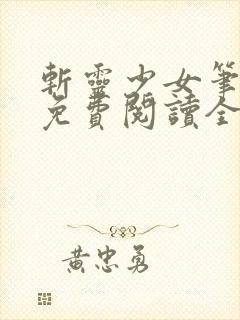 斬靈少女筆
免費閱讀全
黃忠勇